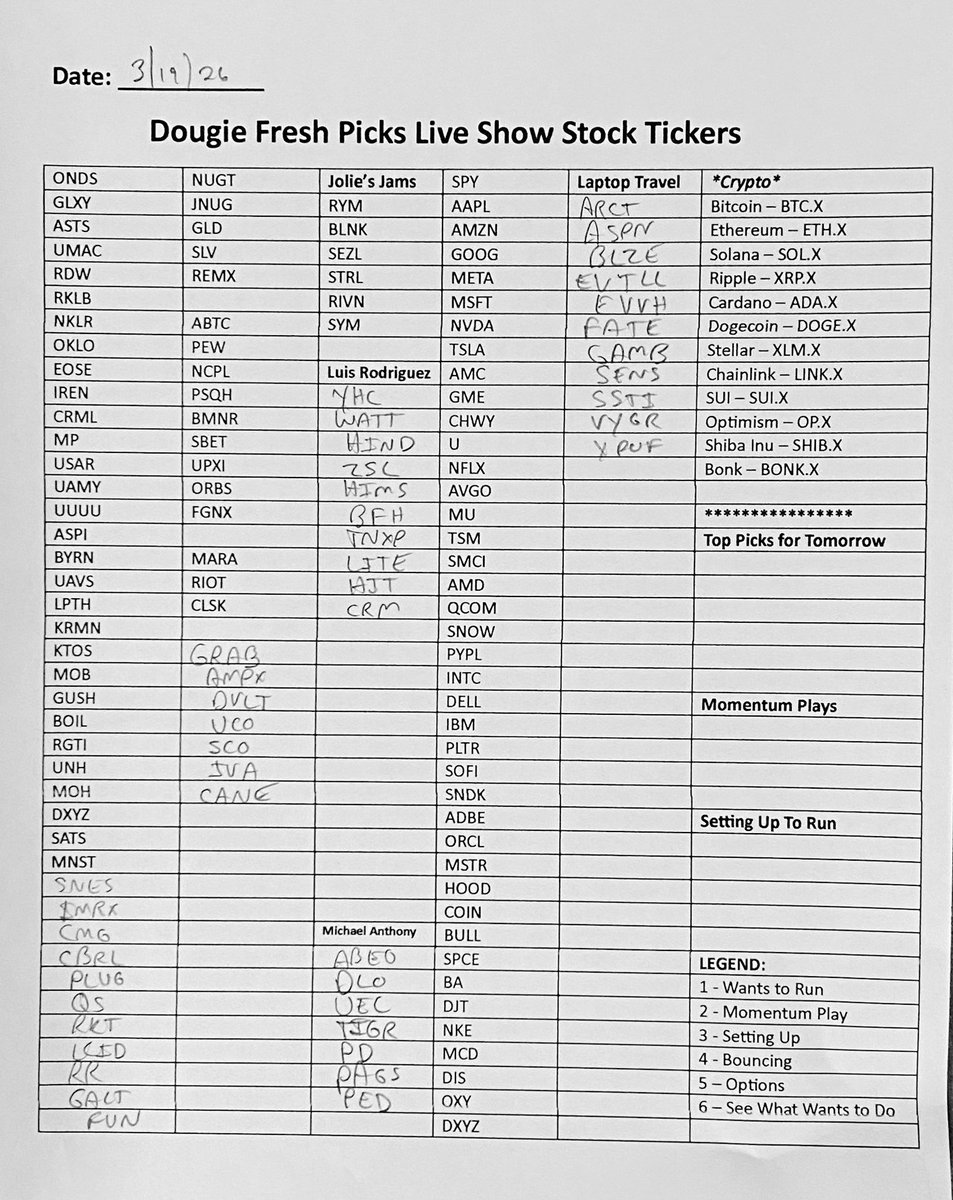 Date: 3/19/26
Dougie Fresh Picks Live Show Stock Tickers
ONDS NUGT Jolie's Jams SPY Laptop Travel *Crypto*
GLXY JNUG RYM AAPL ARCT Bitcoin – BTC.X
ASTS GLD BLNK AMZN ASPN Ethereum – ETH.X
UMAC SLV SEZL GOOG BLZE Solana – SOL.X
RDW REMX STRL META Ripple – XRP.X
RKLB RIVN MSFT Cardano – ADA.X
NKLR ABTC SYM NVDA FATE Dogecoin – DOGE.X
OKLO PEW TSLA GAMB Stellar – XLM.X
EOSE NCPL Luis Rodriguez AMC SENS Chainlink – LINK.X
IREN PSQH YHC GME SSTI SUI – SUI.X
CRML BMNR WATT CHWY VYGR Optimism – OP.X
MP SBET HIND U Shiba Inu – SHIB.X
USAR UPXI ZSL NFLX Bonk – BONK.X
UAMY ORBS HIMS AVGO
UUUU FGNX BFH MU ****************
ASPI TNXP TSM Top Picks for Tomorrow
BYRN MARA LITE SMCI
UAVS RIOT HIT AMD
LPTH CLSK CRM QCOM
KRMN SNOW
KTOS GRAB PYPL
MOB AMPX INTC
GUSH DVLT DELL Momentum Plays
BOIL UCO IBM
RGTI SCO PLTR
UNH IVA SOFI
MOH CANE SNDK
DXYZ ADBE Setting Up To Run
SATS ORCL
MNST MSTR
SNES HOOD
IMRX COIN
CMG Michael Anthony BULL
CBRL ABEO SPCE LEGEND:
PLUG DLO BA 1 - Wants to Run
QS UEC DJT 2 - Momentum Play
RKT TIGR NKE 3 - Setting Up
LCID PD MCD 4 - Bouncing
RR PAGS DIS 5 – Options
GALT PED OXY 6 – See What Wants to Do
FUN DXYZ